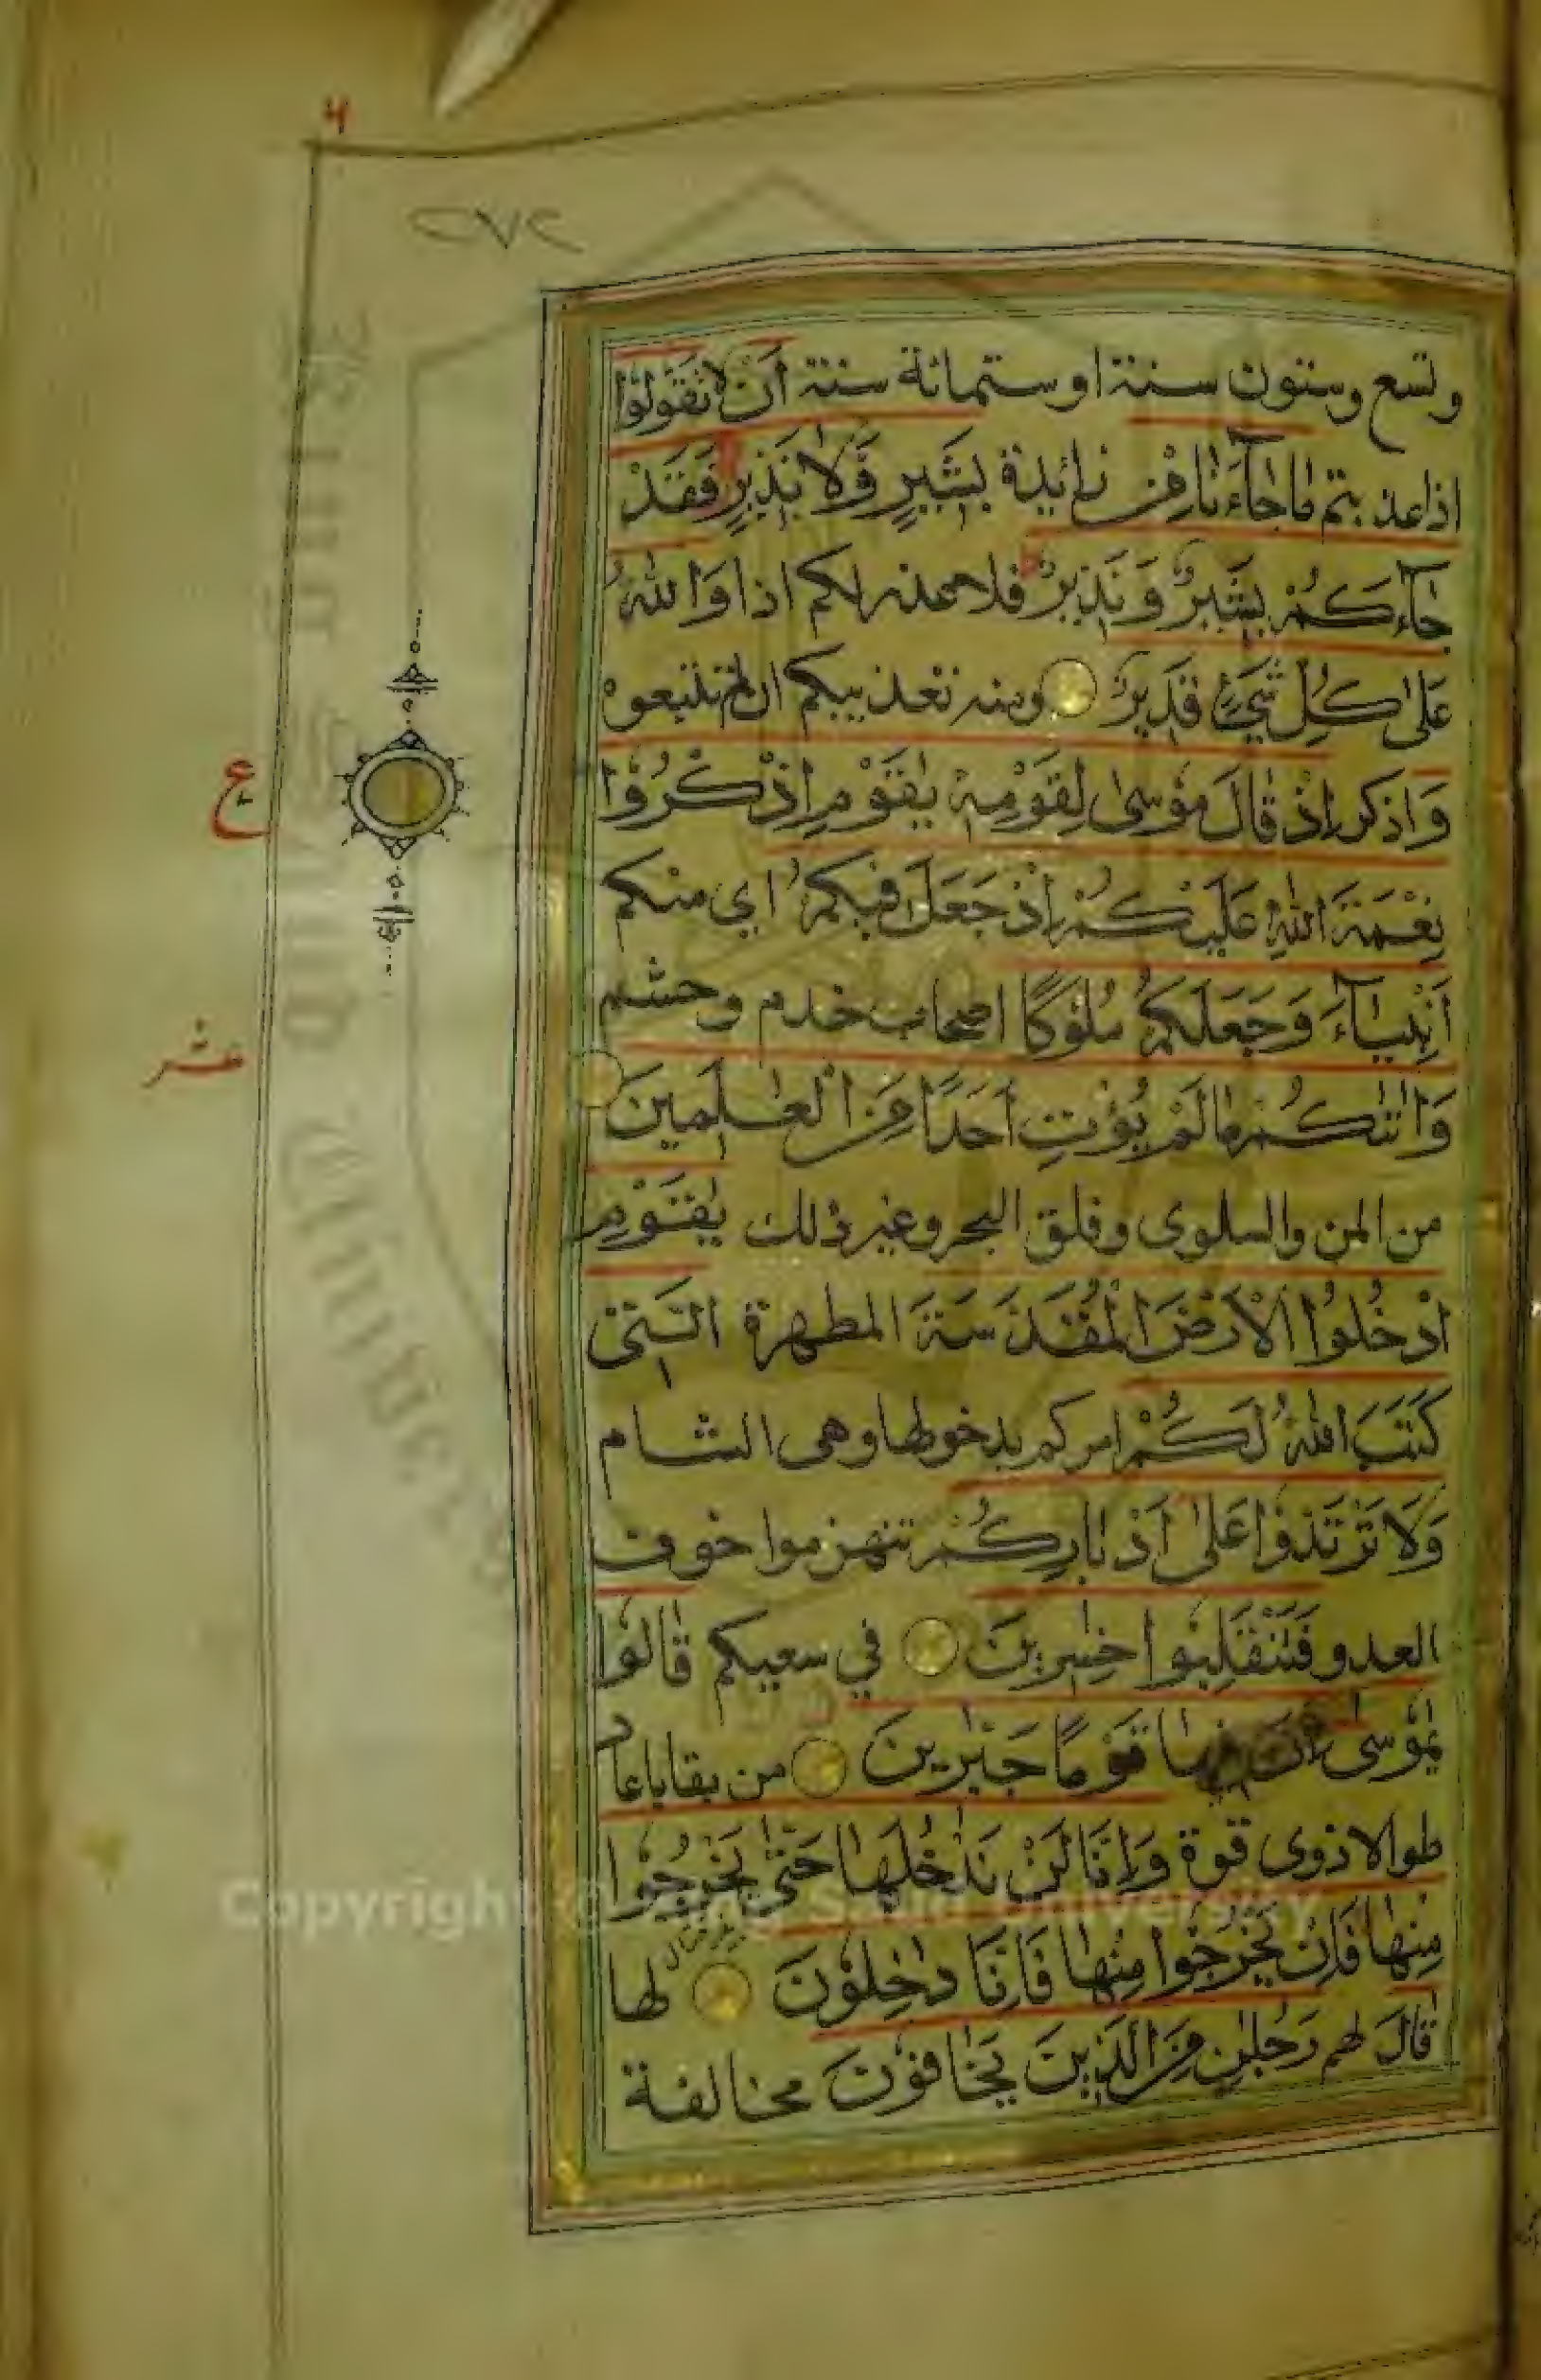 ٢٧٢
وتسع وستون سنة او ستمائة سنة اَنْ لا تَقُوْلُوْا
اذا عذبتم مَا جَآءَنَا مِنْ زائيدة بَشِيْرٍ وَّلَا نَذِيْرٍ فَقَدْ
جَآءَكُمْ بَشِيْرٌ وَّ نَذِيْرٌ فلا عذر لكم اذا وَاللّٰهُ
عَلٰى كُلِّ شَيْءٍ قَدِيْرٌ ومنه تعذيبكم ان لم تتبعوه
وَاذكر اِذْ قَالَ مُوْسٰى لِقَوْمِهٖ يٰقَوْمِ اذْكُرُوْا
نِعْمَةَ اللّٰهِ عَلَيْكُمْ اِذْ جَعَلَ فِيْكُمْ اي منكم
اَنْۢبِيَآءَ وَجَعَلَكُمْ مُلُوْكًا اصحاب خدم وحشم
وَاٰتٰىكُمْ مَا لَمْ يُؤْتِ اَحَدًا مِّنَ الْعٰلَمِيْنَ
من المن والسلوى وفلق البحر وغير ذلك يٰقَوْمِ
ادْخُلُوا الْاَرْضَ الْمُقَدَّسَةَ المطهرة الَّتِيْ
كَتَبَ اللّٰهُ لَكُمْ امركم بدخولها وهى الشام
وَلَا تَرْتَدُّوْا عَلٰى اَدْبَارِكُمْ تنهزموا خوف
العدو فَتَنْقَلِبُوْا خٰسِرِيْنَ في سعيكم قَالُوْا
يٰمُوْسٰى اِنَّ فِيْهَا قَوْمًا جَبَّرِيْنَ من بقايا عاد
طوالا ذوى قوة وَاِنَّا لَنْ نَدْخُلَهَا حَتّٰى يَخْرُجُوْا
مِنْهَا فَاِنْ يَخْرُجُوْا مِنْهَا فَاِنَّا دٰخِلُوْنَ لها
قَالَ لهم رَجُلٰنِ مِنَ الَّذِيْنَ يَخَافُوْنَ مخالفة
ع
Copyright © King Saud University